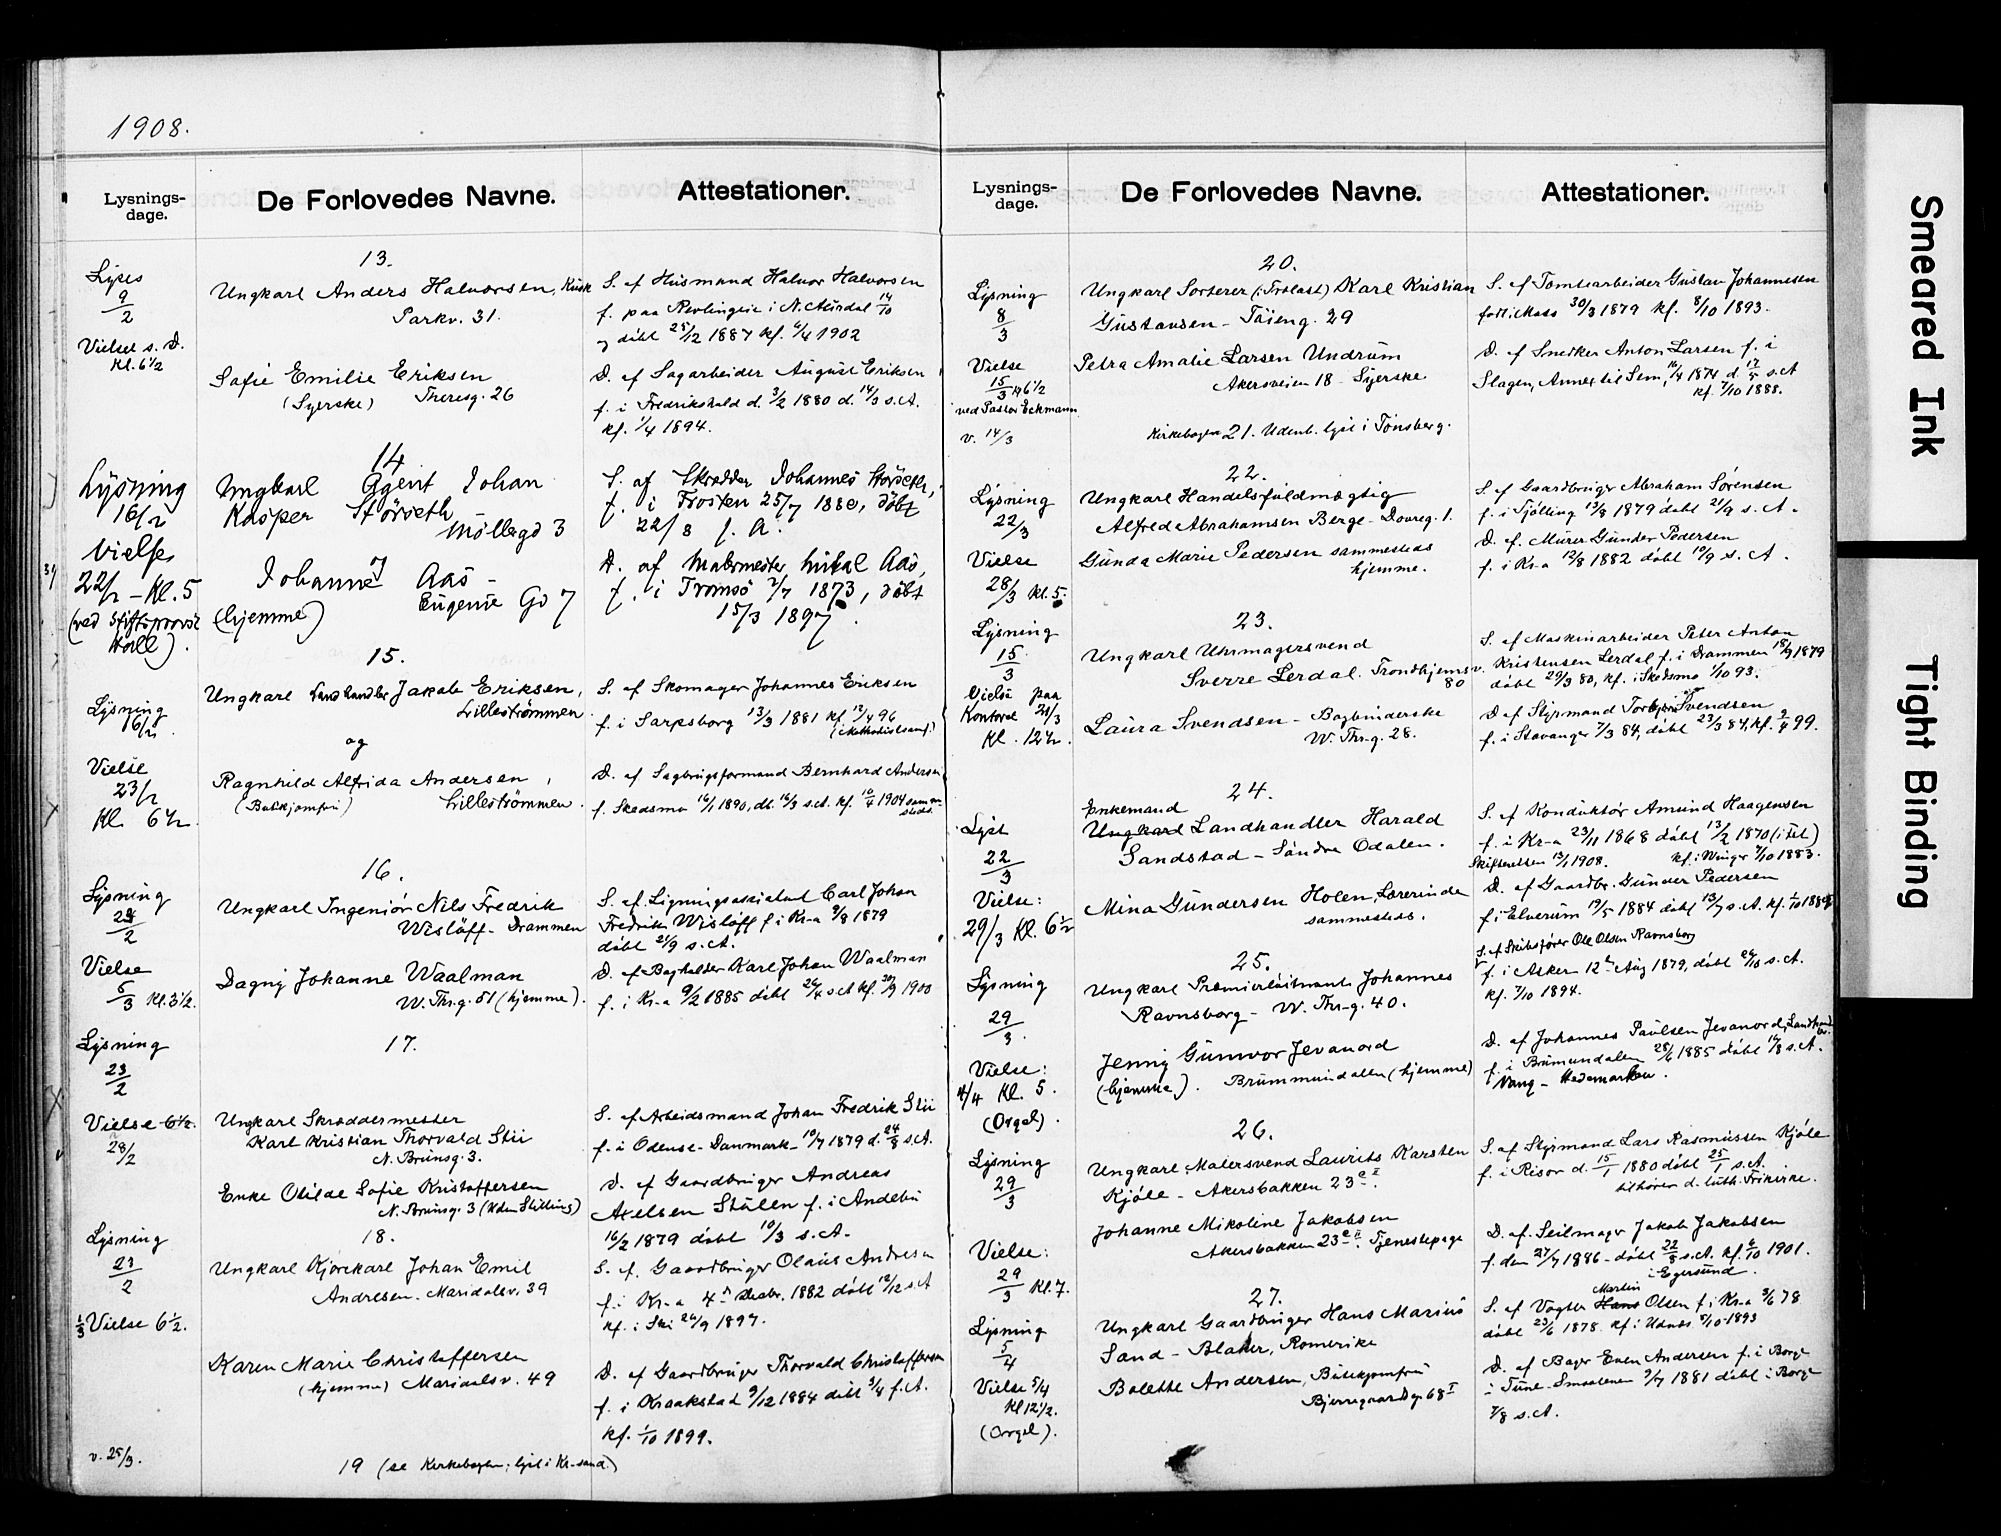 1908.
Lysnings-
dage.
De Forlovedes Navne.
Attestationer.
13.
Lyses
9/2
Vielse s. D.
Kl. 6½
Ungkarl Anders Halvorsen, Kusk
Parkv. 31.
Sofie Emilie Eriksen
(Syerske) Theresg. 26
S. af Husmand Halvor Halvorsen
døbt 25/12 1887 kf. 6/4 1902
D. af Sagarbeider August Eriksen
f. i Fredrikshald d. 3/2 1880 d. 14/3 s. A.
kf. 1/4 1894.
14
Lysning
16/2
Vielse
22/2 - Kl. 5
(ved Stiftsprovst
Ungkarl Johan
Kasper Störseth
Möllergd 3
Johanne Aas -
(hjemme) Eugenie Gd 7
S. af Skrædder Johannes Störseth,
f. i Frosten 25/7 1880, döbt
22/8 s. A.
D. af Malermester Mikal Aas,
f. i Tromsö 2/7 1873, döbt
15/3 1897.
15.
Lysning
16/2
Vielse
23/2
Kl. 6½
Ungkarl Landhandler Jakob Eriksen,
Lilleströmmen
og
Ragnhild Alfrida Andersen,
(Butikjomfru) Lilleströmmen.
S. af Skomager Johannes Eriksen
f. i Sarpsborg 13/3 1881 kf. 12/4 96
(Methodistsamf.)
D. af Sagbrugsformand Bernhard Andersen
f. Skedsmo 16/1 1890, db. 16/3 s. A. kf. 10/4 1904 sammesteds.
16.
Lysning
23/2
Vielse
5/3 Kl. 3½.
Ungkarl Ingeniör Nils Fredrik
Wislöff - Drammen
Dagny Johanne Waalman
W. Thr.g. 51 (hjemme).
S. af Ligningsassistent Carl Johan
Fredrik Wislöff f. i Kr-a 9/8 1879
döbt 21/9 s. A.
D. af Bogholder Karl Johan Waalman
f. i Kr-a 9/2 1885 döbt 26/4 s A kf. 30/9 1900
17.
Lysning
23/2
Vielse 6½.
28/2
Ungkarl Skræddermester
Karl Kristian Thorvald Stii
N. Brunsg. 3.
Enke Otilde Sofie Kristoffersen
N. Brunsg. 3 (Uden Stilling)
S. af Arbeidsmand Johan Fredrik Stii
f. i Odense - Danmark - 10/7 1879 d. 24/8 s. A.
D. af Gaardbruger Andreas
Axelsen Stulen f. i Andebu
16/2 1879 döbt 10/3 s. A.
18.
Lysning
23/2
1/3 Vielse 6½.
Ungkarl Kjörekarl Johan Emil
Andresen - Maridalsv. 39
Karen Marie Christoffersen
(hjemme) Maridalsv. 49
S. af Gaardbruger Olaus Andresen
f. i Kr-a 4de Decbr. 1882 döbt 12/12 s. A
kf. i Ski 26/9 1897.
D. af Gaardbruger Thorvald Christoffersen
f. i Kraakstad 9/12 1884 döbt 3/4 f. A.
kf. 1/10 1899.
v. 25/3.
19 (se Kirkebogen; lyst i Kr-sand.)
Lysnings-
dage.
De Forlovedes Navne.
Attestationer.
20.
Lysning
8/3
Vielse
15/3 kl 6½
ved Pastor Eckmann
v. 14/3
Ungkarl Sorterer (i Trælast) Karl Kristian
Gustavsen - Töieng. 29
Petra Amalie Larsen Undrum
Akersveien 18 - Syerske
S. af Tomtearbeider Gustav Johannesen
född i Moss 30/3 1879 kf. 8/10 1893.
D. af Snedker Anton Larsen f. i
Slagen, Annex til Sem, 16/4 1874 d. 17/5 s. A
kf. 7/10 1888.
Kirkebogen 21. Udenb. lyst i Tönsberg.
22.
Lysning
22/3
Vielse
28/3 Kl. 5.
Ungkarl Handelsfuldmægtig
Alfred Abrahamsen Berge - Dovreg. 1.
Gunda Marie Pedersen sammesteds
hjemme.
S. af Gaardbruger Abraham Sörensen
f. i Tjölling 13/8 1879 döbt 21/9 s. A.
D. af Murer Gunder Pedersen
f. i Kr-a 12/8 1882 döbt 10/9 s. A.
23.
Lysning
15/3
Vielse paa
Kontoret 21/3
Kl. 12½.
Ungkarl Uhrmagersvend
Sverre Lerdal. Trondhjemsv. 80
Laura Svendsen - Bogbinderske
W. Thr.g. 28.
S. af Maskinarbeider Peter Anton
Kristensen Lerdal f. i Drammen 18/9 1879
döbt 29/3 80, kf. i Skedsmo 1/10 93.
D af Styrmand Torbjörn Svendsen
f. i Stavanger 7/3 84, döbt 23/3 84, kf. 9/4 99.
24.
Lyst
22/3
Vielse:
29/3 Kl. 6½
Enkemand
Ungkarl Landhandler Harald
Sandstad - Söndre Odalen.
Mina Gundersen Holen, Lærerinde
sammesteds.
S. af Konduktör Amund Haagensen
f. i Kr-a 23/11 1868 döbt 13/2 1870
Skifteretten 13/1 1908. kf. i Winger 7/10 1883.
D. af Gaardbr. Gunder Pedersen
f. i Elverum 19/5 1884 döbt 13/7 s. A. kf.
25.
Lysning
29/3.
Vielse:
4/4 Kl. 5.
(Orgel).
Ungkarl Premierlöitnant Johannes
Ravnsborg - W. Thr-g. 40.
Jenny Gunvor Jevanord
(hjemme). Brummundalen (hjemme)
S. af Skibsförer Ole Olsen Ravnsborg
f. i Asker 12te Aug 1879, döbt 26/10 s. A.
kf. 7/10 1894.
D. af Johannes Paulsen Jevanord, Landhandler
f. i Brumundalen 28/6 1885 döbt 16/8 s. A.
Vang - Hedemarken.
26.
Lysning
29/3
Vielse:
29/3 Kl. 7.
Ungkarl Malersvend Laurits Karsten
Kjöle - Akersbakken 23 c II.
Johanne Mikoline Jakobsen
Akersbakken 23 c II. Tjenestepige
S. af Styrmand Lars Rasmussen Kjöle
f. i Risör d. 15/1 1880 döbt 25/1 s. A.
tilhörer d. luth. Frikirke.
D. af Seilmager Jakob Jakobsen
f. den 27/7 1886 - döbt 22/8 s. A. kf. 6/10 1901.
i Egersund.
27.
Lysning
5/4
Vielse 5/4
Kl 12½.
(Orgel).
Ungkarl Gaardbruger Hans Marius
Sand - Blaker, Romerike
Bolette Andersen, Butikjomfru
Bjerregaardsg. 68 I
Martin
S. af Vogter Hans Olsen f. i Kr-a 3/6 78
döbt 23/6 1878. kf. i Udnæs 8/10 1893
D. af Bager Even Andersen f. i Borge
i Tune - Smaalenene 9/7 1881 döbt i Borge
7/8 s. A.
Smeared Ink
Tight Binding